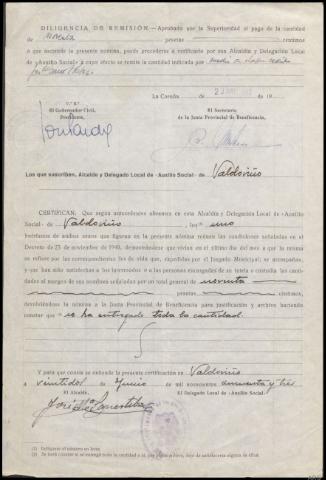 DILIGENCIA DE REMISIÓN.—Aprobado por la Superioridad el pago de la cantidad
de noventa pesetas céntimos
a que asciende la presente nómina, puede procederse a verificarlo por esa Alcaldía y Delegación Local
de «Auxilio Social» a cuyo efecto se remite la cantidad indicada por
La Coruña, 2 JUN 19
V.º B.º
El Gobernador Civil, El Secretario
Presidente, de la Junta Provincial de Beneficencia,
Los que suscriben, Alcalde y Delegado Local de «Auxilio Social» de Valdoviño
CERTIFICAN: Que según antecedentes obrantes en esta Alcaldía y Delegación Local de «Auxilio
Social» de Valdoviño, los uno
huérfanos de ambos sexos que figuran en la presente nómina reúnen las condiciones señaladas en el
Decreto de 23 de noviembre de 1940, demostrándose que vivían en el último día del mes a que la misma
se refiere por las correspondientes fes de vida que, expedidas por el Juzgado Municipal, se acompañan,
y que han sido satisfechas a los interesados o a las personas encargadas de su tutela o custodia las canti-
dades al margen de sus nombres señaladas por un total general de noventa
pesetas céntimos,
devolviéndose la nómina a la Junta Provincial de Beneficencia para justificación y archivo haciendo
constar que se ha entregado toda la cantidad.
Y para que conste se extiende la presente certificación en Valdoviño
a veintidos de Junio de mil novecientos cuarenta y tres
El Alcalde, El Delegado Local de «Auxilio Social»,
(1) Consígnese el número en letra.
(2) Se hará constar si se entregó toda la cantidad o si, por algún motivo, dejó de satisfacerse alguna de ellas.